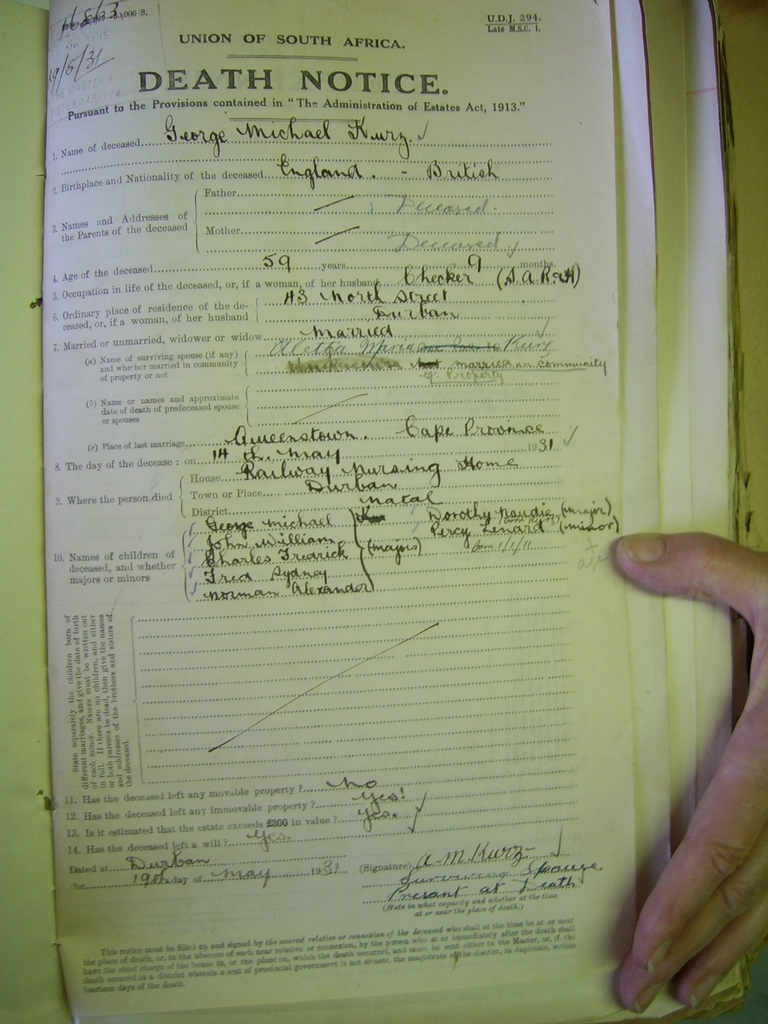 11863
U.D.J. 294.
Late M.S.C. 1.
19/5/31
UNION OF SOUTH AFRICA.
DEATH NOTICE.
Pursuant to the Provisions contained in "The Administration of Estates Act, 1913."
1. Name of deceased George Michael Kurz
2. Birthplace and Nationality of the deceased England. - British
3. Names and Addresses of the Parents of the deceased
Father Deceased.
Mother Deceased
4. Age of the deceased 59 years 9 months.
5. Occupation in life of the deceased, or, if a woman, of her husband Checker (S.A.R.&H)
6. Ordinary place of residence of the deceased, or, if a woman, of her husband 43 North Street
Durban
7. Married or unmarried, widower or widow Married
(a) Name of surviving spouse (if any) and whether married in community of property or not
Aletha Maria Kurz
married in community
of Property
(b) Name or names and approximate date of death of predeceased spouse or spouses
(c) Place of last marriage Queenstown. Cape Province
8. The day of the decease: on 14th May 1931
9. Where the person died
House Railway Nursing Home
Town or Place Durban
District Natal
10. Names of children of deceased, and whether majors or minors
George Michael
John William
Charles Fredrick
Fred Sydney
Norman Alexander
(majors)
Dorothy Naudie (major)
Percy Lenard (minor)
born 1/1/11
State separately the children born of different marriages, and give the date of birth of each minor. Names must be written out in full. If there are no children, and either or both parents be dead, then give the names and addresses of the brothers and sisters of the deceased.
11. Has the deceased left any movable property? No
12. Has the deceased left any immovable property? Yes!
13. Is it estimated that the estate exceeds £300 in value? Yes.
14. Has the deceased left a will? Yes.
Dated at Durban
the 19th day of May 1931
(Signature) A. M. Kurz
Surviving Spouse
Present at Death
(State in what capacity and whether at the time at or near the place of death.)
This notice must be filled up and signed by the nearest relative or connection of the deceased who shall at the time be at or near
the place of death, or, in the absence of such near relative or connexion, by the person who at or immediately after the death shall
have the chief charge of the house in, or the place on, which the death occurred, and must be sent either to the Master, or, if the
death occurred in a district wherein a seat of provincial government is not situate, the magistrate of the district, in duplicate, within
fourteen days of the death.